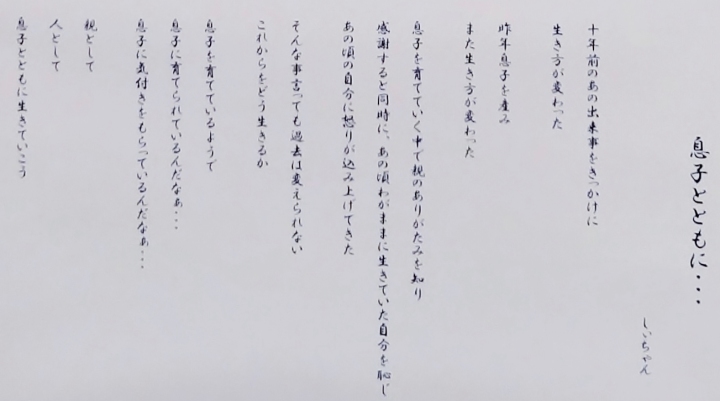 息子とともに・・・
しいちゃん
十年前のあの出来事をきっかけに
生き方が変わった
昨年息子を産み
また生き方が変わった
息子を育てていく中で親のありがたみを知り
感謝すると同時に、あの頃わがままに生きていた自分を恥じ
あの頃の自分に怒りが込み上げてきた
そんな事言っても過去は変えられない
これからをどう生きるか
息子を育てているようで
息子に育てられているんだなぁ・・・
息子に気付きをもらっているんだなぁ・・・
親として
人として
息子とともに生きていこう